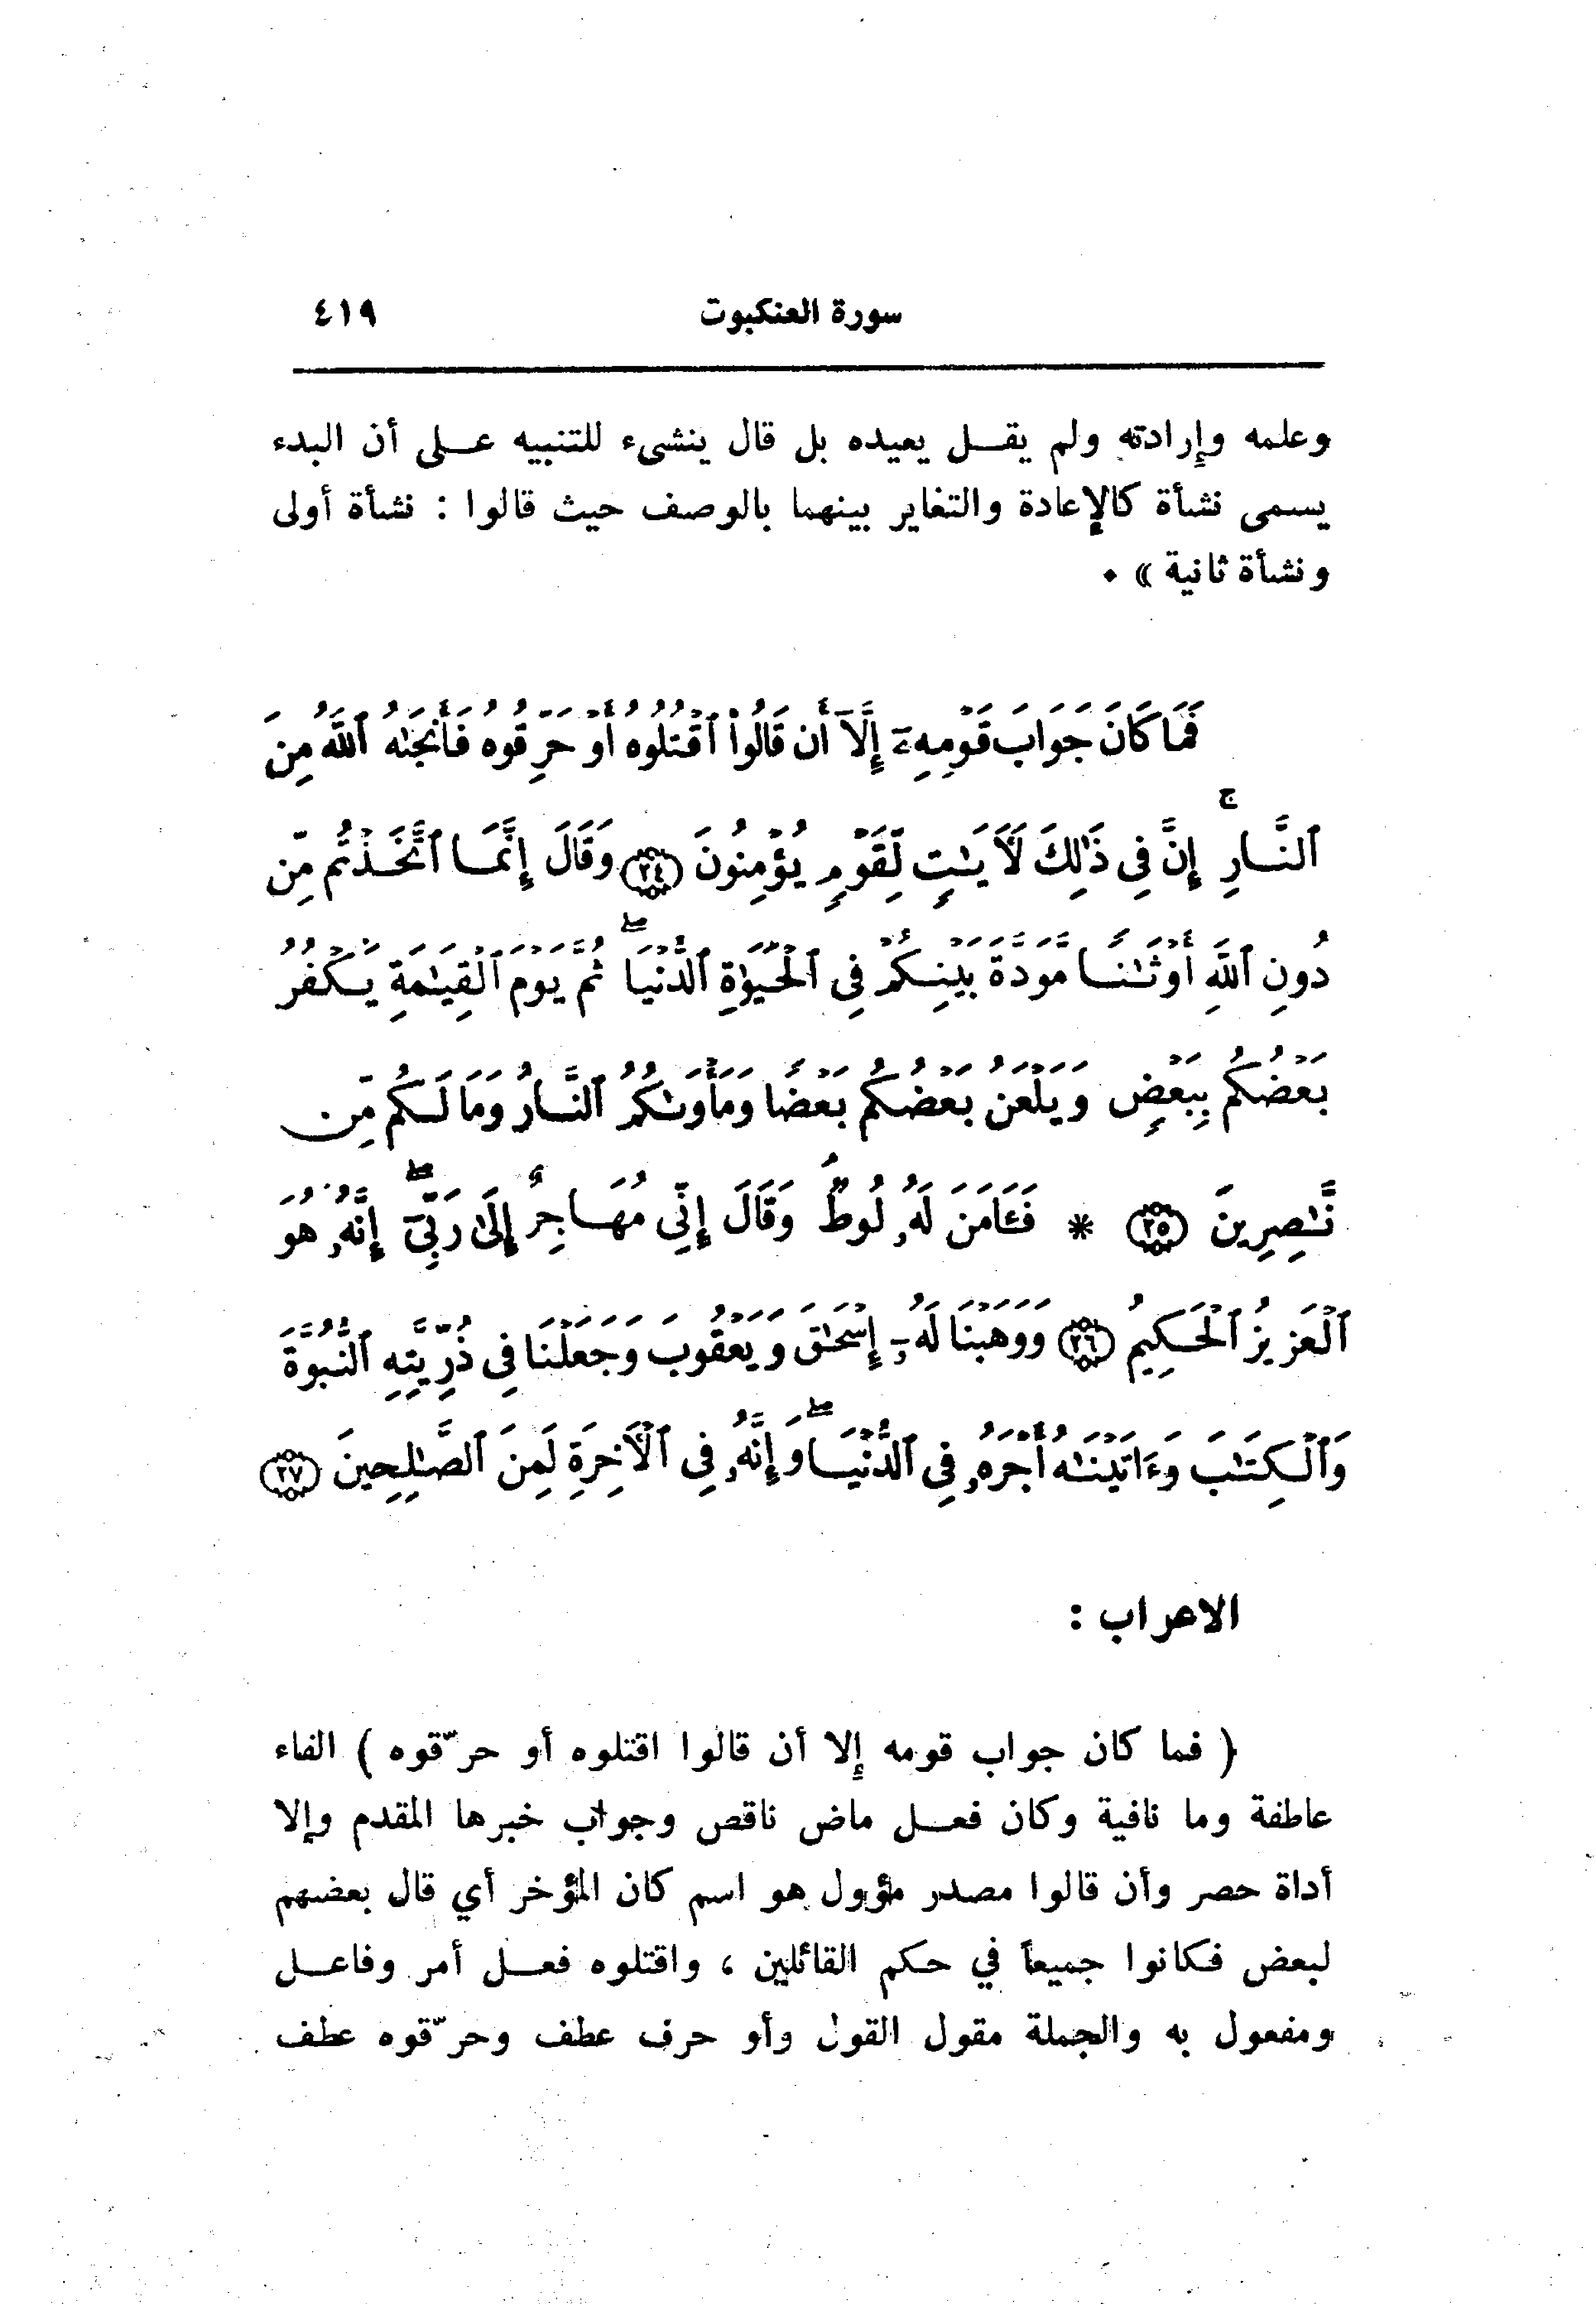 سورة العنكبوت ٤١٩
وعلمه وإرادته ولم يقل يعيده بل قال ينشىء للتنبيه على أن البدء
يسمى نشأة كالإعادة والتغاير بينهما بالوصف حيث قالوا : نشأة أولى
ونشأة ثانية » .
فَمَا كَانَ جَوَابَ قَوْمِهِۦٓ إِلَّآ أَن قَالُوا۟ ٱقْتُلُوهُ أَوْ حَرِّقُوهُ فَأَنجَىٰهُ ٱللَّهُ مِنَ
ٱلنَّارِ ۚ إِنَّ فِى ذَٰلِكَ لَأَيَـٰتٍ لِّقَوْمٍ يُؤْمِنُونَ ﴿٢٤﴾ وَقَالَ إِنَّمَا ٱتَّخَذْتُم مِّن
دُونِ ٱللَّهِ أَوْثَـٰنًا مَّوَدَّةَ بَيْنِكُمْ فِى ٱلْحَيَوٰةِ ٱلدُّنْيَا ۖ ثُمَّ يَوْمَ ٱلْقِيَـٰمَةِ يَكْفُرُ
بَعْضُكُم بِبَعْضٍ وَيَلْعَنُ بَعْضُكُم بَعْضًا وَمَأْوَىٰكُمُ ٱلنَّارُ وَمَا لَكُم مِّن
نَّـٰصِرِينَ ﴿٢٥﴾ * فَـَٔامَنَ لَهُۥ لُوطٌ ۘ وَقَالَ إِنِّى مُهَاجِرٌ إِلَىٰ رَبِّىٓ ۖ إِنَّهُۥ هُوَ
ٱلْعَزِيزُ ٱلْحَكِيمُ ﴿٢٦﴾ وَوَهَبْنَا لَهُۥٓ إِسْحَـٰقَ وَيَعْقُوبَ وَجَعَلْنَا فِى ذُرِّيَّتِهِ ٱلنُّبُوَّةَ
وَٱلْكِتَـٰبَ وَءَاتَيْنَـٰهُ أَجْرَهُۥ فِى ٱلدُّنْيَا ۖ وَإِنَّهُۥ فِى ٱلْأَخِرَةِ لَمِنَ ٱلصَّـٰلِحِينَ ﴿٢٧﴾
الاعراب :
( فما كان جواب قومه إلا أن قالوا اقتلوه أو حرّقوه ) الفاء
عاطفة وما نافية وكان فعل ماض ناقص وجواب خبرها المقدم وإلا
أداة حصر وأن قالوا مصدر مؤول هو اسم كان المؤخر أي قال بعضهم
لبعض فكانوا جميعاً في حكم القائلين ، واقتلوه فعل أمر وفاعل
ومفعول به والجملة مقول القول وأو حرف عطف وحرّقوه عطف